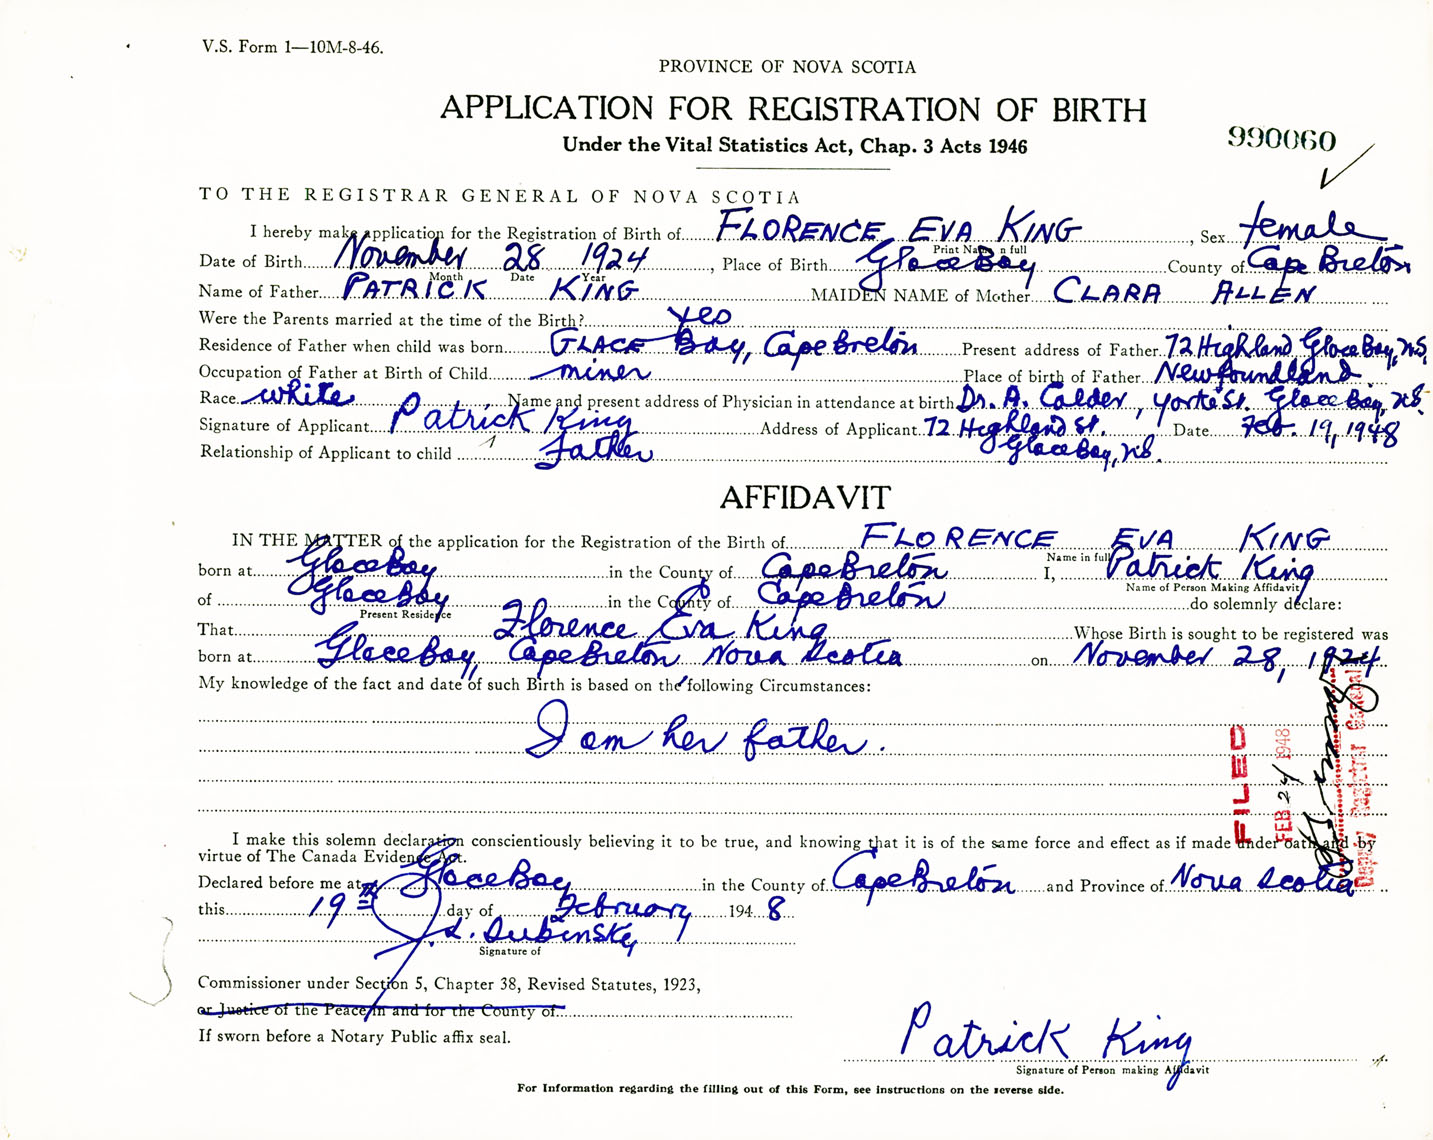 V.S. Form 1—10M-8-46.
PROVINCE OF NOVA SCOTIA
APPLICATION FOR REGISTRATION OF BIRTH
Under the Vital Statistics Act, Chap. 3 Acts 1946
990060
TO THE REGISTRAR GENERAL OF NOVA SCOTIA
I hereby make application for the Registration of Birth of FLORENCE EVA KING, Sex female
Print Name in full
Date of Birth November 28 1924, Place of Birth Glace Bay County of Cape Breton
Month Date Year
Name of Father PATRICK KING MAIDEN NAME of Mother CLARA ALLEN
Were the Parents married at the time of the Birth? yes
Residence of Father when child was born GLACE Bay, Cape Breton Present address of Father 72 Highland Glace Bay, N.S.
Occupation of Father at Birth of Child miner Place of birth of Father Newfoundland.
Race white, Name and present address of Physician in attendance at birth Dr. A. Calder, York St. Glace Bay, N.S.
Signature of Applicant Patrick King Address of Applicant 72 Highland St. Date Feb. 19, 1948
Relationship of Applicant to child Father Glace Bay, N.S.
AFFIDAVIT
IN THE MATTER of the application for the Registration of the Birth of FLORENCE EVA KING
Name in full
born at Glace Bay in the County of Cape Breton I, Patrick King
Name of Person Making Affidavit
of Glace Bay in the County of Cape Breton do solemnly declare:
Present Residence
That Florence Eva King Whose Birth is sought to be registered was
born at Glace Bay, Cape Breton Nova Scotia on November 28, 1924
My knowledge of the fact and date of such Birth is based on the following Circumstances:
I am her father.
FILED
FEB 24 1948
Deputy Registrar General
I make this solemn declaration conscientiously believing it to be true, and knowing that it is of the same force and effect as if made under oath and by
virtue of The Canada Evidence Act.
Declared before me at Glace Bay in the County of Cape Breton and Province of Nova Scotia
this 19th day of February 1948
J. L. Dubinsky
Signature of
Commissioner under Section 5, Chapter 38, Revised Statutes, 1923,
or Justice of the Peace in and for the County of
If sworn before a Notary Public affix seal.
Patrick King
Signature of Person making Affidavit
For Information regarding the filling out of this Form, see instructions on the reverse side.